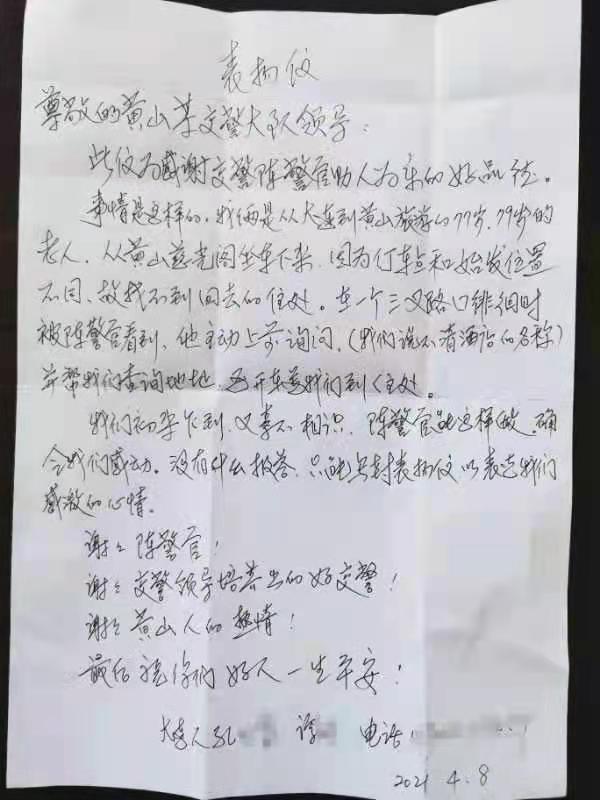 表扬信
尊敬的黄山某交警大队领导：
此信为感谢交警陈警官助人为乐的好品德。
事情是这样的，我俩是从大连到黄山旅游的77岁、79岁的
老人，从黄山慈光阁坐车下来，因为停车点和始发位置
不同，故找不到回去的住处。在一个三叉路口徘徊时
被陈警官看到，他主动上前询问，（我们说不清酒店的名称）
并帮我们查询地址，又开车送我们到住处。
我们初来乍到，又素不相识，陈警官能这样做，确
令我们感动。没有什么报答，只能写封表扬信以表达我们
感激的心情。
谢谢陈警官！
谢谢交警领导培养出的好交警！
谢谢黄山人的热情！
最后祝你们好人一生平安！
大连人孔 电话：
2021 4.8